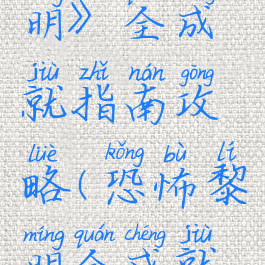 明》全成
jiù zhǐ nán gōng
就指南攻
lüè kǒng bù lí
略(恐怖黎
míng quán chéng jiù
明全成就